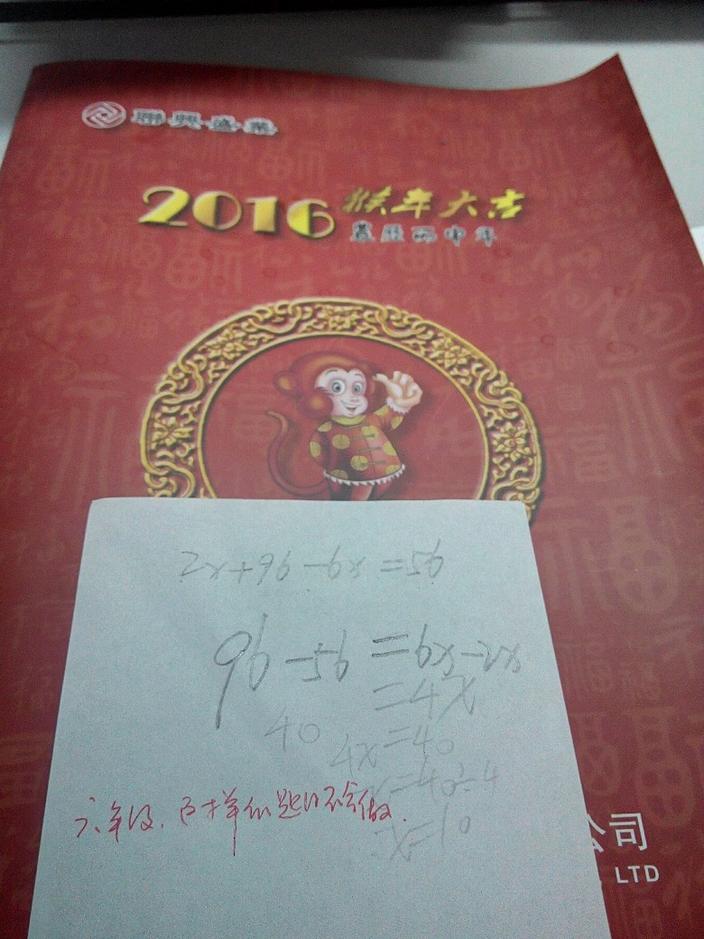 聯興盛業
2016 猴年大吉
農歷丙申年
2x+96-6x=56
96-56=6x-2x
=4x
40
4x=40
x=40÷4
x=10
六年级.这样的题都不会做.
公司
LTD